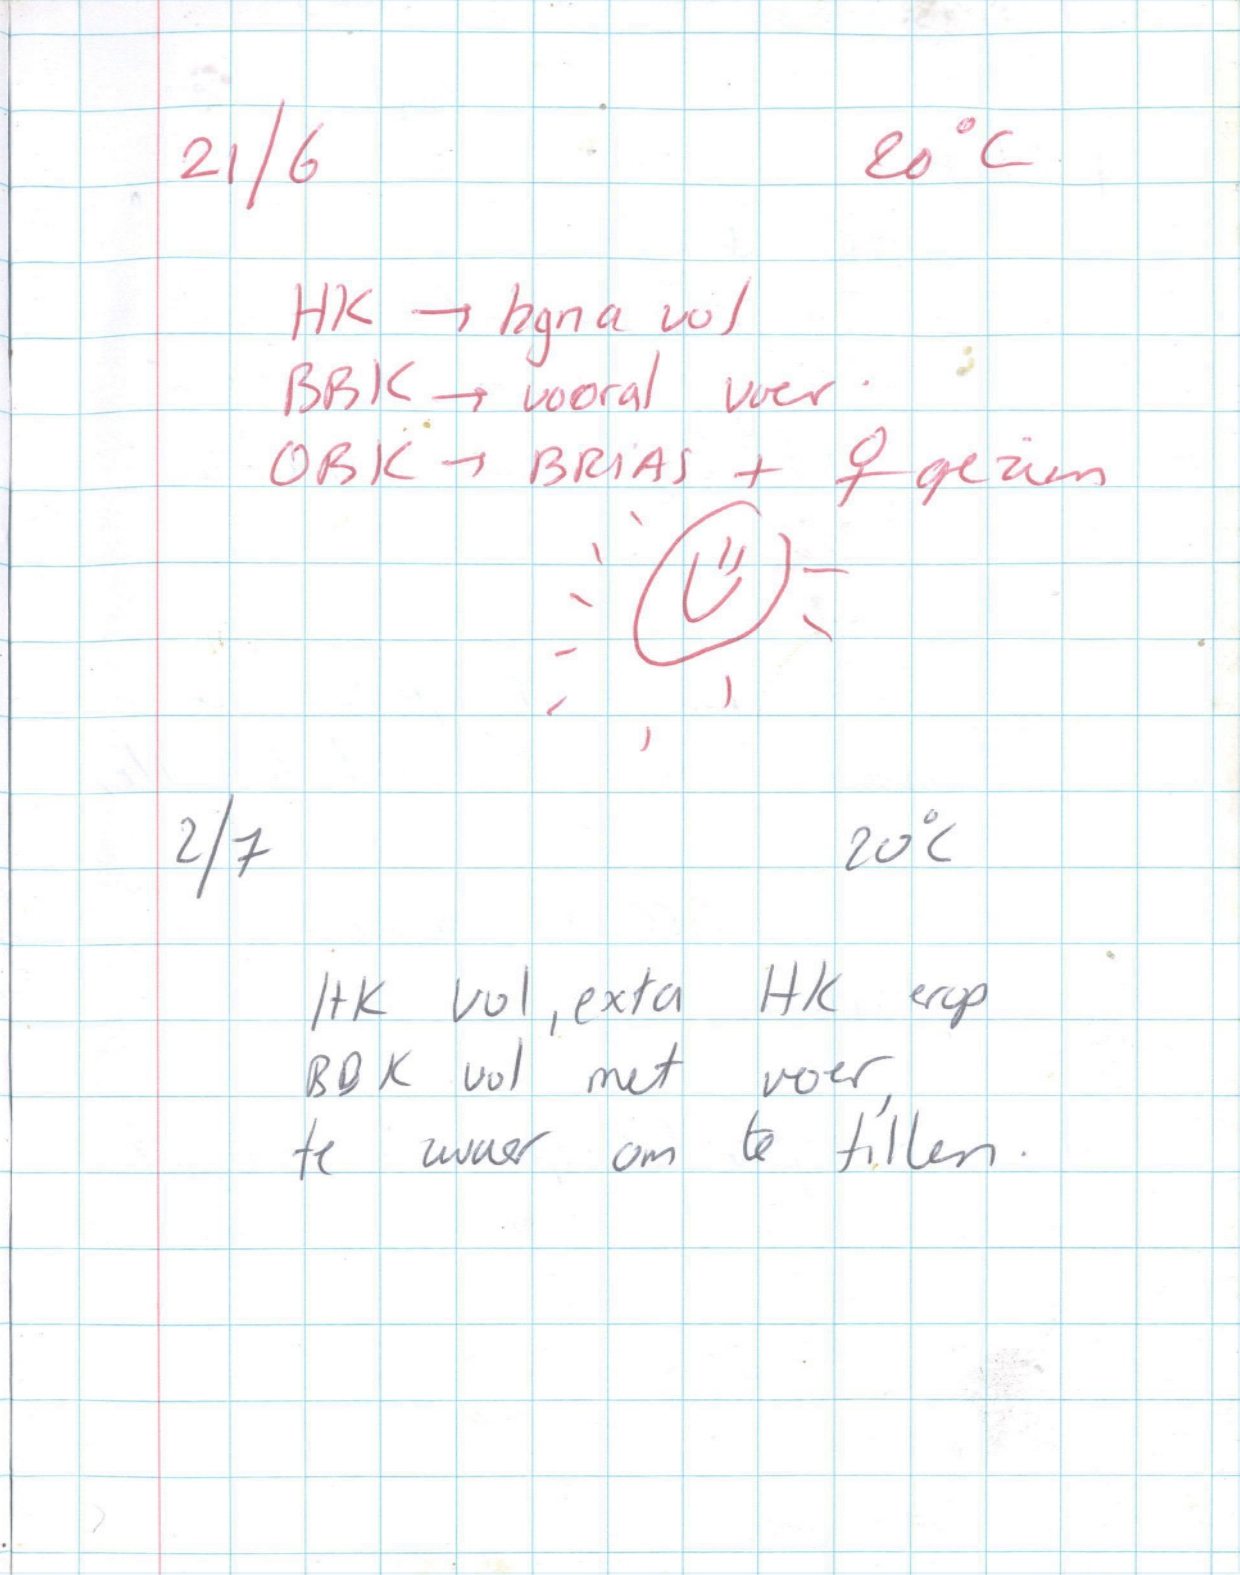 21/6 20°C
HK → bijna vol
BBK → vooral voer.
OBK → BRIAS + ♀ gezien
2/7 20°C
HK vol, exta HK erop
BBK vol met voer,
te zwaer om te tillen.